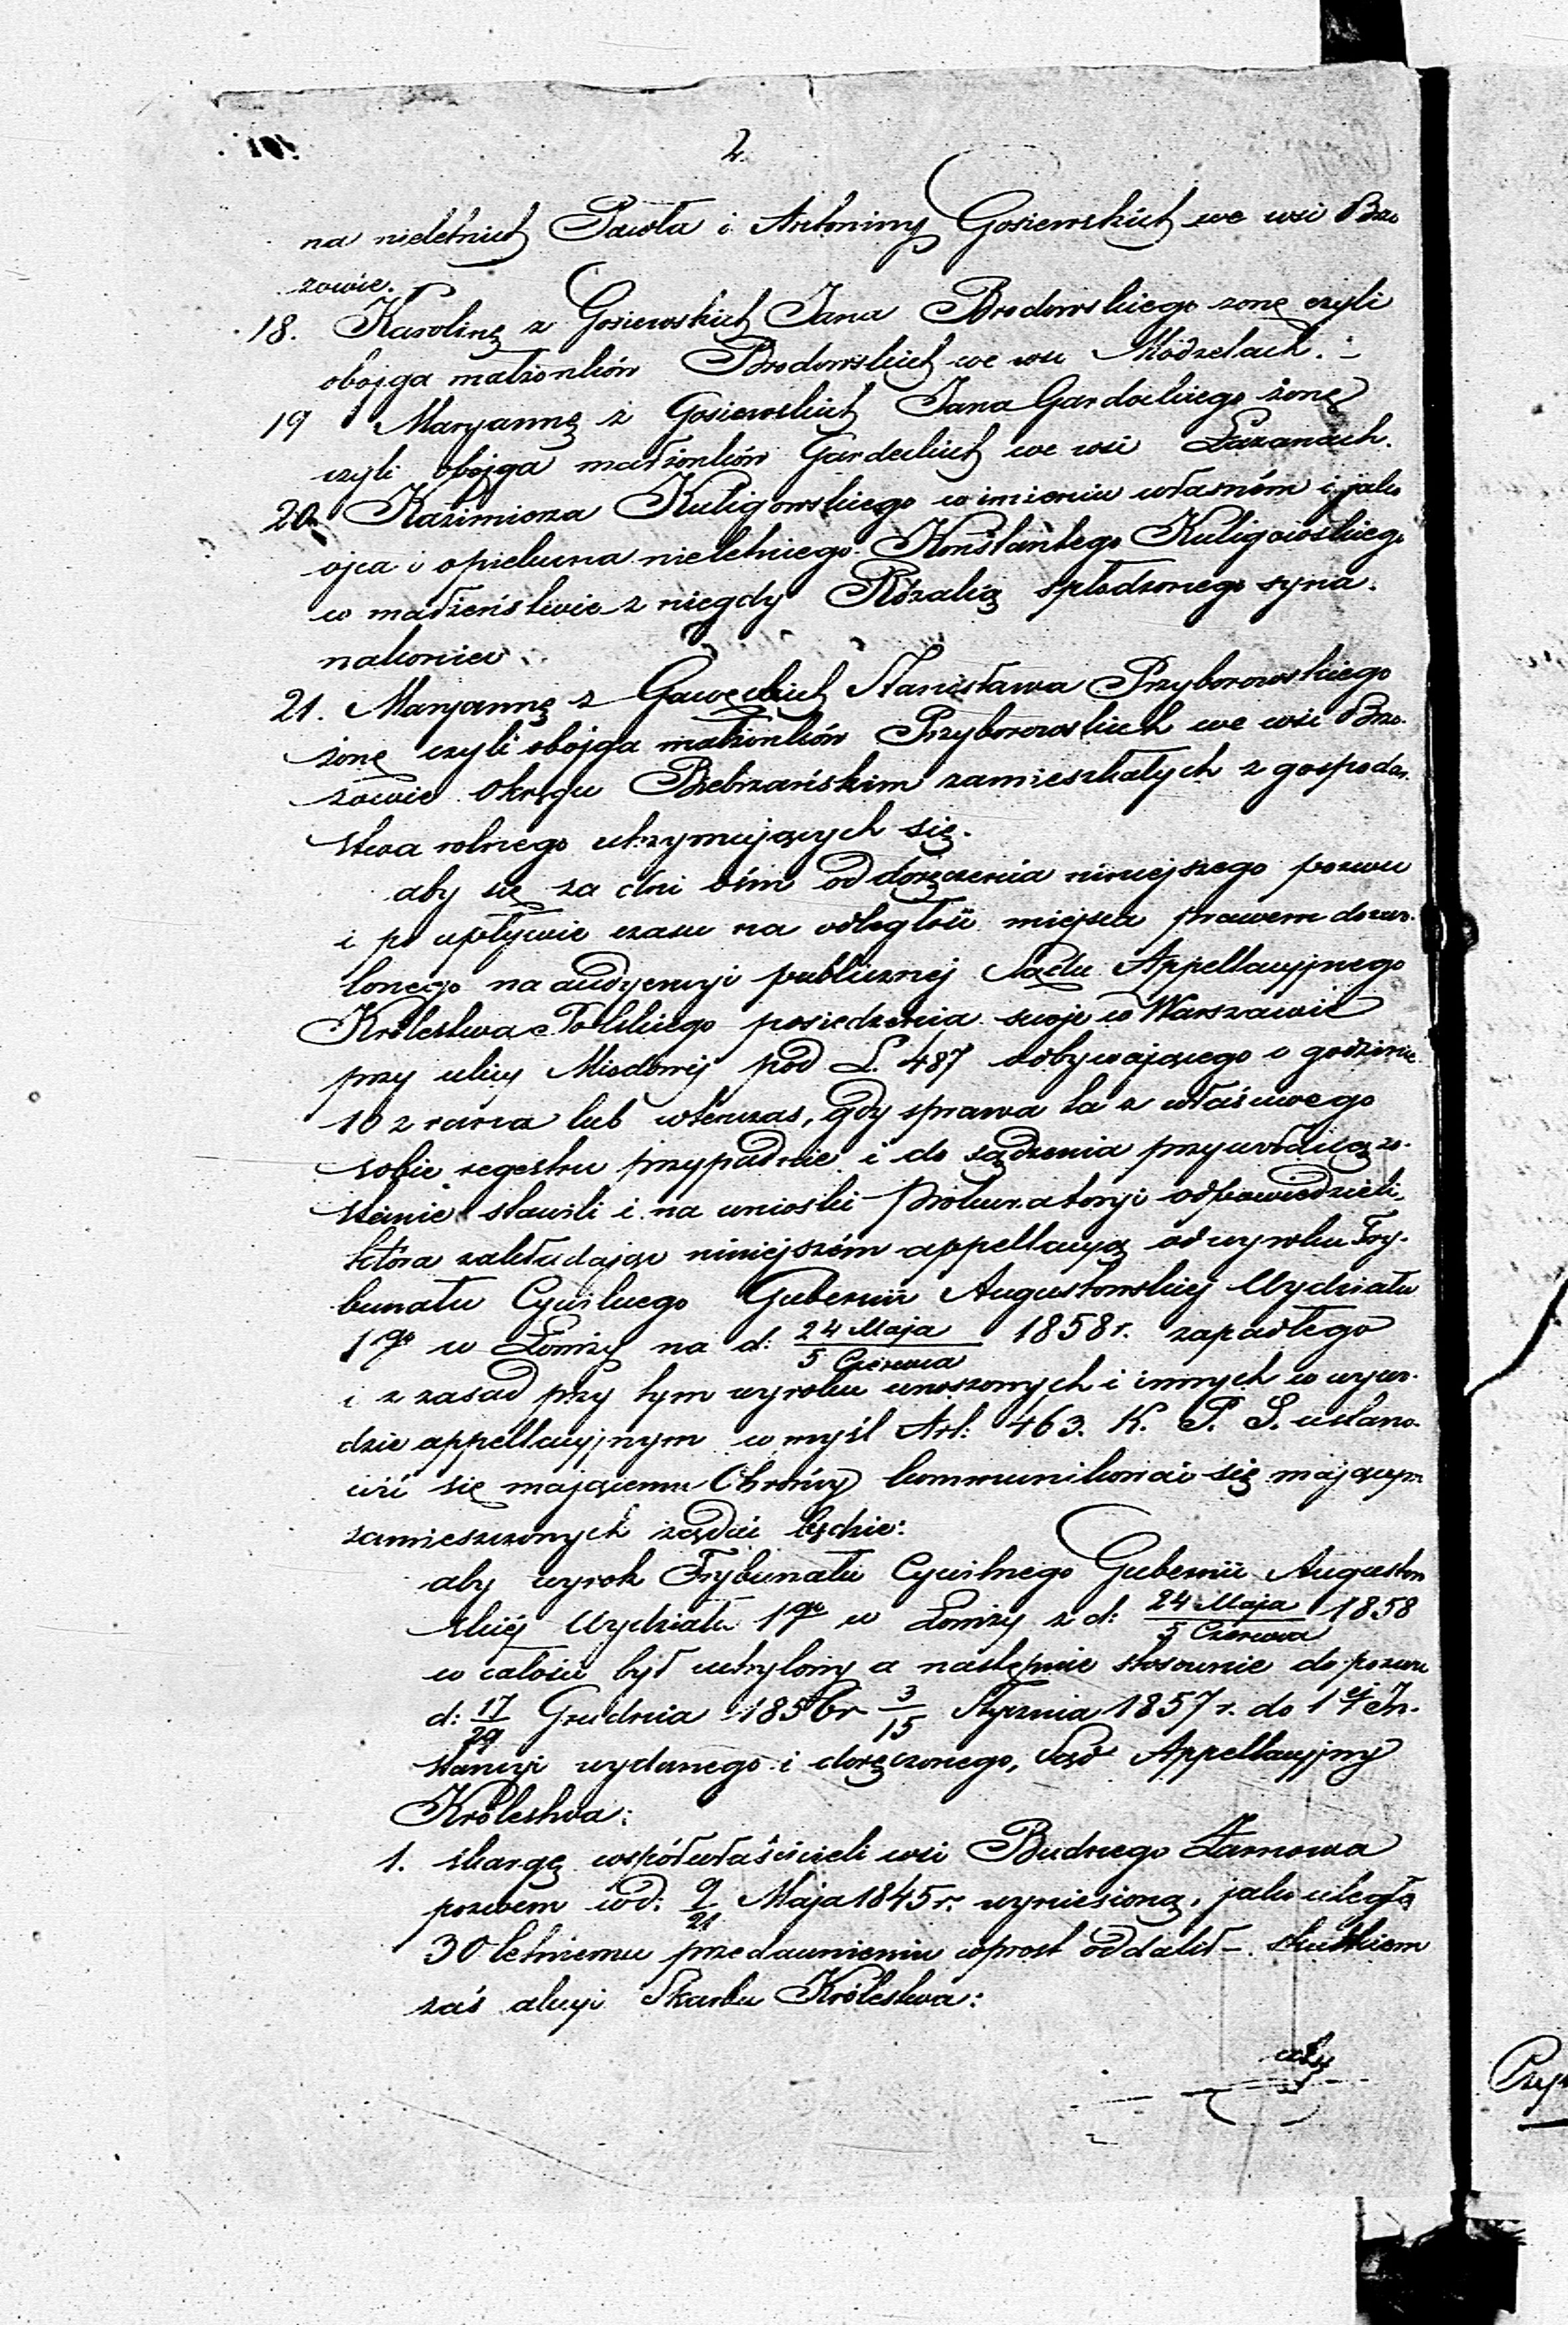 2.
na nieletnich Pawła i Antoniny Gosiewskich we wsi Brzo
zowie.
18. Karolinę z Gosiewskich Jana Brodowskiego zonę czyli
obojga małżonków Brodowskich we wsi Modzelach.
19 Maryannę z Gosiewskich Jana Gardockiego żonę
czyli obojga małżonków Gardockich we wsi Łazanach.
20. Kazimierza Kuligowskiego w imieniu własném i jako
ojca i opiekuna nieletniego Konstantego Kuligowskiego
w małżeństwie z niegdy Rózalią spłodzonego syna.
nakoniec
21. Maryannę z Gawęckich Stanisława Przyborowskiego
żonę czyli obojga małżonków Przyborowskich we wsi Brzo-
zowie Okręgu Biebrzańskim zamieszkałych z gospodar.
stwa rolnego utrzymujących się.
aby się za dni ośm od doręczenia niniejszego pozwu
i po upływie czasu na odległość miejsca prawem dozwo-
lonego na audyencyi publicznej Sądu Appellacyjnego
Królestwa Polskiego posiedzenia swoje w Warszawie
przy ulicy Miodowej pod L. 487 odbywającego o godzinie
10 z rana lub wtenczas, gdy sprawa ta z właściwego
sobie regestru przypadnie i do sądzenia przywołaną zo-
stanie stawili i na wnioski Prokuratoryi odpowiedzieli,
która zakładając niniejszém appellacyą od wyroku Try-
bunału Cywilnego Gubernii Augustowskiej Wydziału
1go w Łomży na d: 24 Maja / 5 Czerwca 1858 r. zapadłego
i z zasad przy tym wyroku wnoszonych i innych w wywo-
dzie appellacyjnym w myśl Art: 463. K. P. S. ustano-
wić się mającemu Obrońcy kommunikować się mającym
zamieszczonych żądać będzie:
aby wyrok Trybunału Cywilnego Gubernii Augustow
skiej Wydziału 1go w Łomży z d: 24 Maja / 5 Czerwca 1858
w całości był uchylony a następnie stosownie do pozwu
d: 17/29 Grudnia 1856 r 3/15 Stycznia 1857 r. do 1ej In-
stancyi wydanego i doręczonego, Sąd Appellacyjny
Królestwa:
1. skargę współwłaścicieli wsi Budnego Żarnowa
pozwem w d: 9/21 Maja 1845 r. wyniesioną, jako uległą
30 letniemu przedawnieniu wprost oddalił – skutkiem
zaś akcyi Skarbu Królestwa:
aby